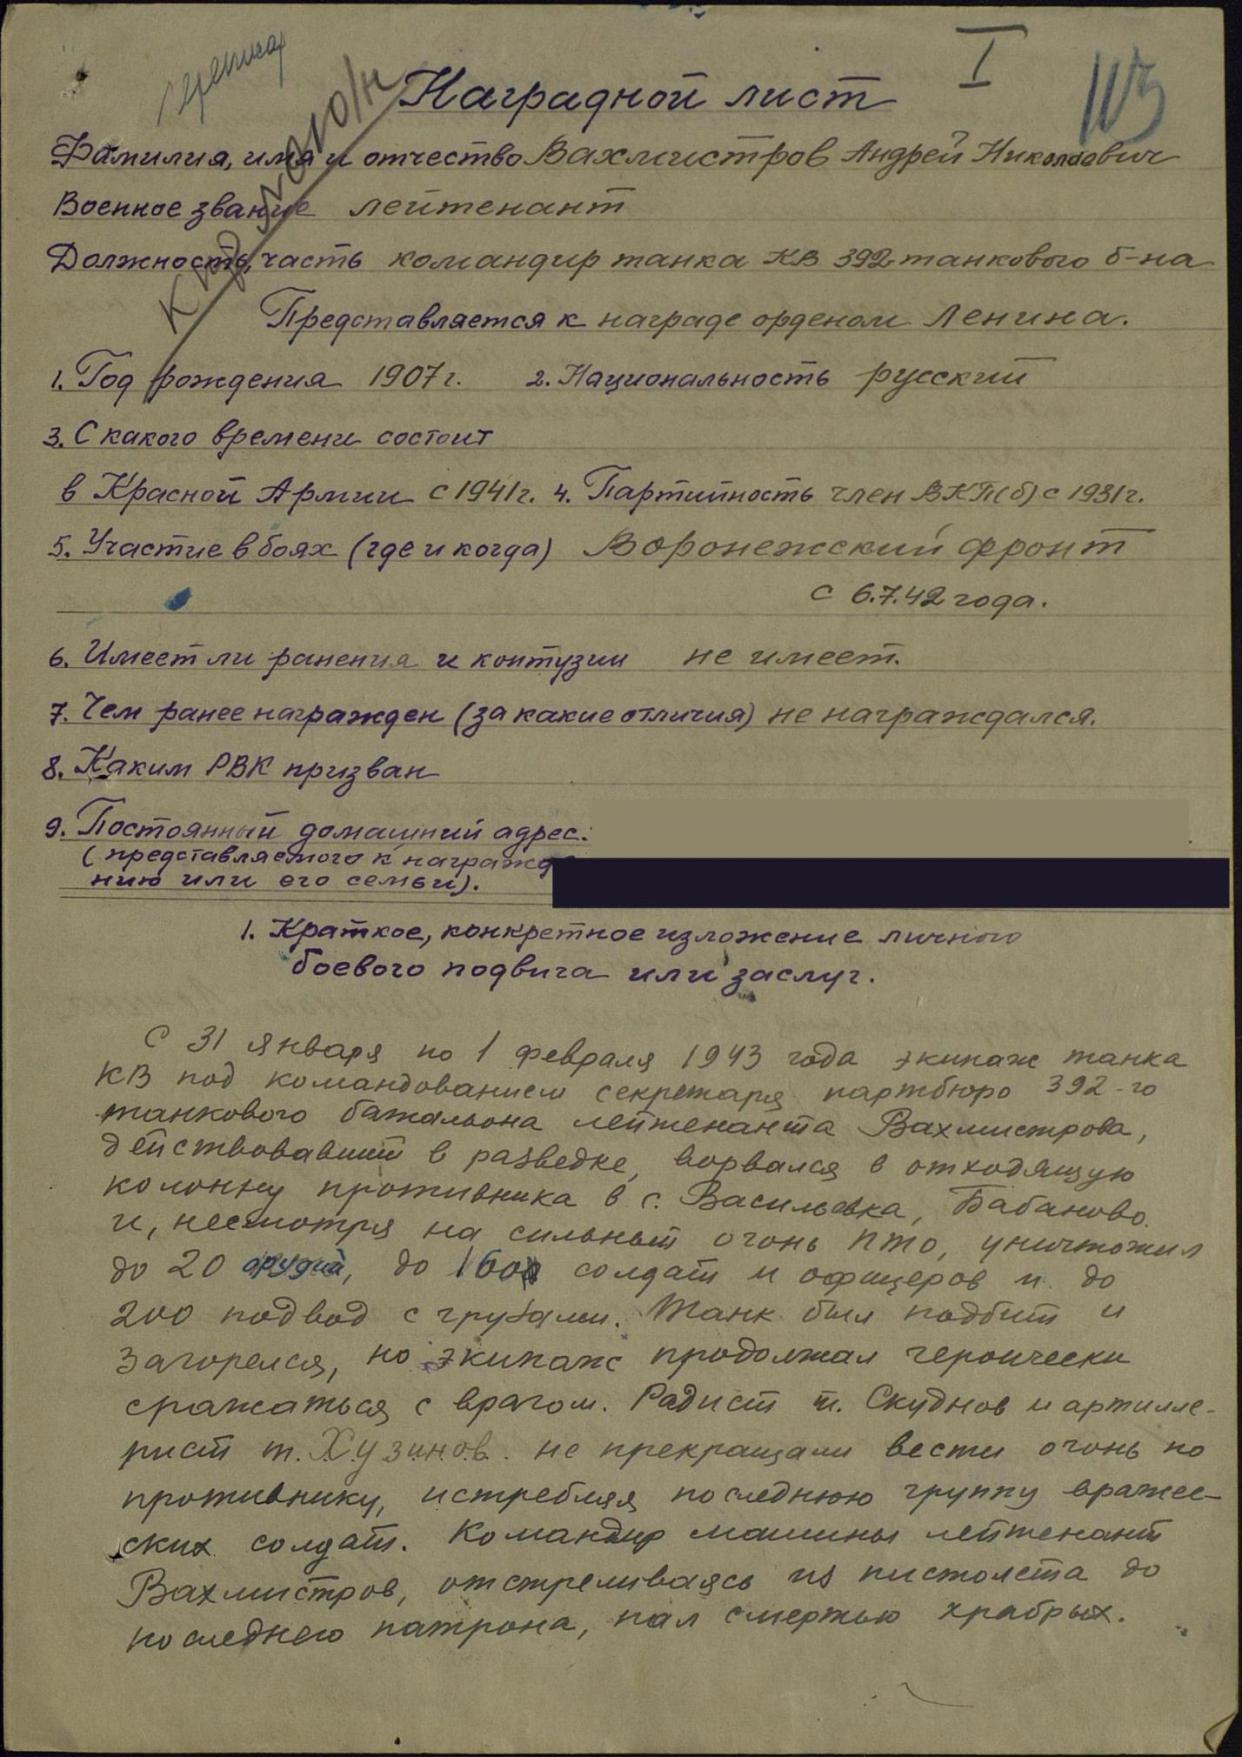 I
113
Наградной лист
Фамилия, имя и отчество Вахмистров Андрей Николаевич
Военное звание лейтенант
Должность, часть командир танка КВ 392 танкового б-на
Представляется к награде орденом Ленина.
1. Год рождения 1907 г. 2. Национальность русский
3. С какого времени состоит
в Красной Армии с 1941 г. 4. Партийность член ВКП(б) с 1931 г.
5. Участие в боях (где и когда) Воронежский фронт
с 6.7.42 года.
6. Имеет ли ранения и контузии не имеет.
7. Чем ранее награжден (за какие отличия) не награждался.
8. Каким РВК призван
9. Постоянный домашний адрес.
(представляемого к награжде
нию или его семьи).
1. Краткое, конкретное изложение личного
боевого подвига или заслуг.
С 31 января по 1 февраля 1943 года экипаж танка
КВ под командованием секретаря партбюро 392-го
танкового батальона лейтенанта Вахмистрова,
действовавший в разведке, ворвался в отходящую
колонну противника в с. Васильевка, Бабаново
и, несмотря на сильный огонь ПТО, уничтожил
до 20 орудий, до 1600 солдат и офицеров и до
200 подвод с грузами. Танк был подбит и
загорелся, но экипаж продолжал героически
сражаться с врагом. Радист т. Скуднов и артилле-
рист т. Хузинов не прекращали вести огонь по
противнику, истребляя последнюю группу вражес-
ских солдат. Командир машины лейтенант
Вахмистров, отстреливаясь из пистолета до
последнего патрона, пал смертью храбрых.